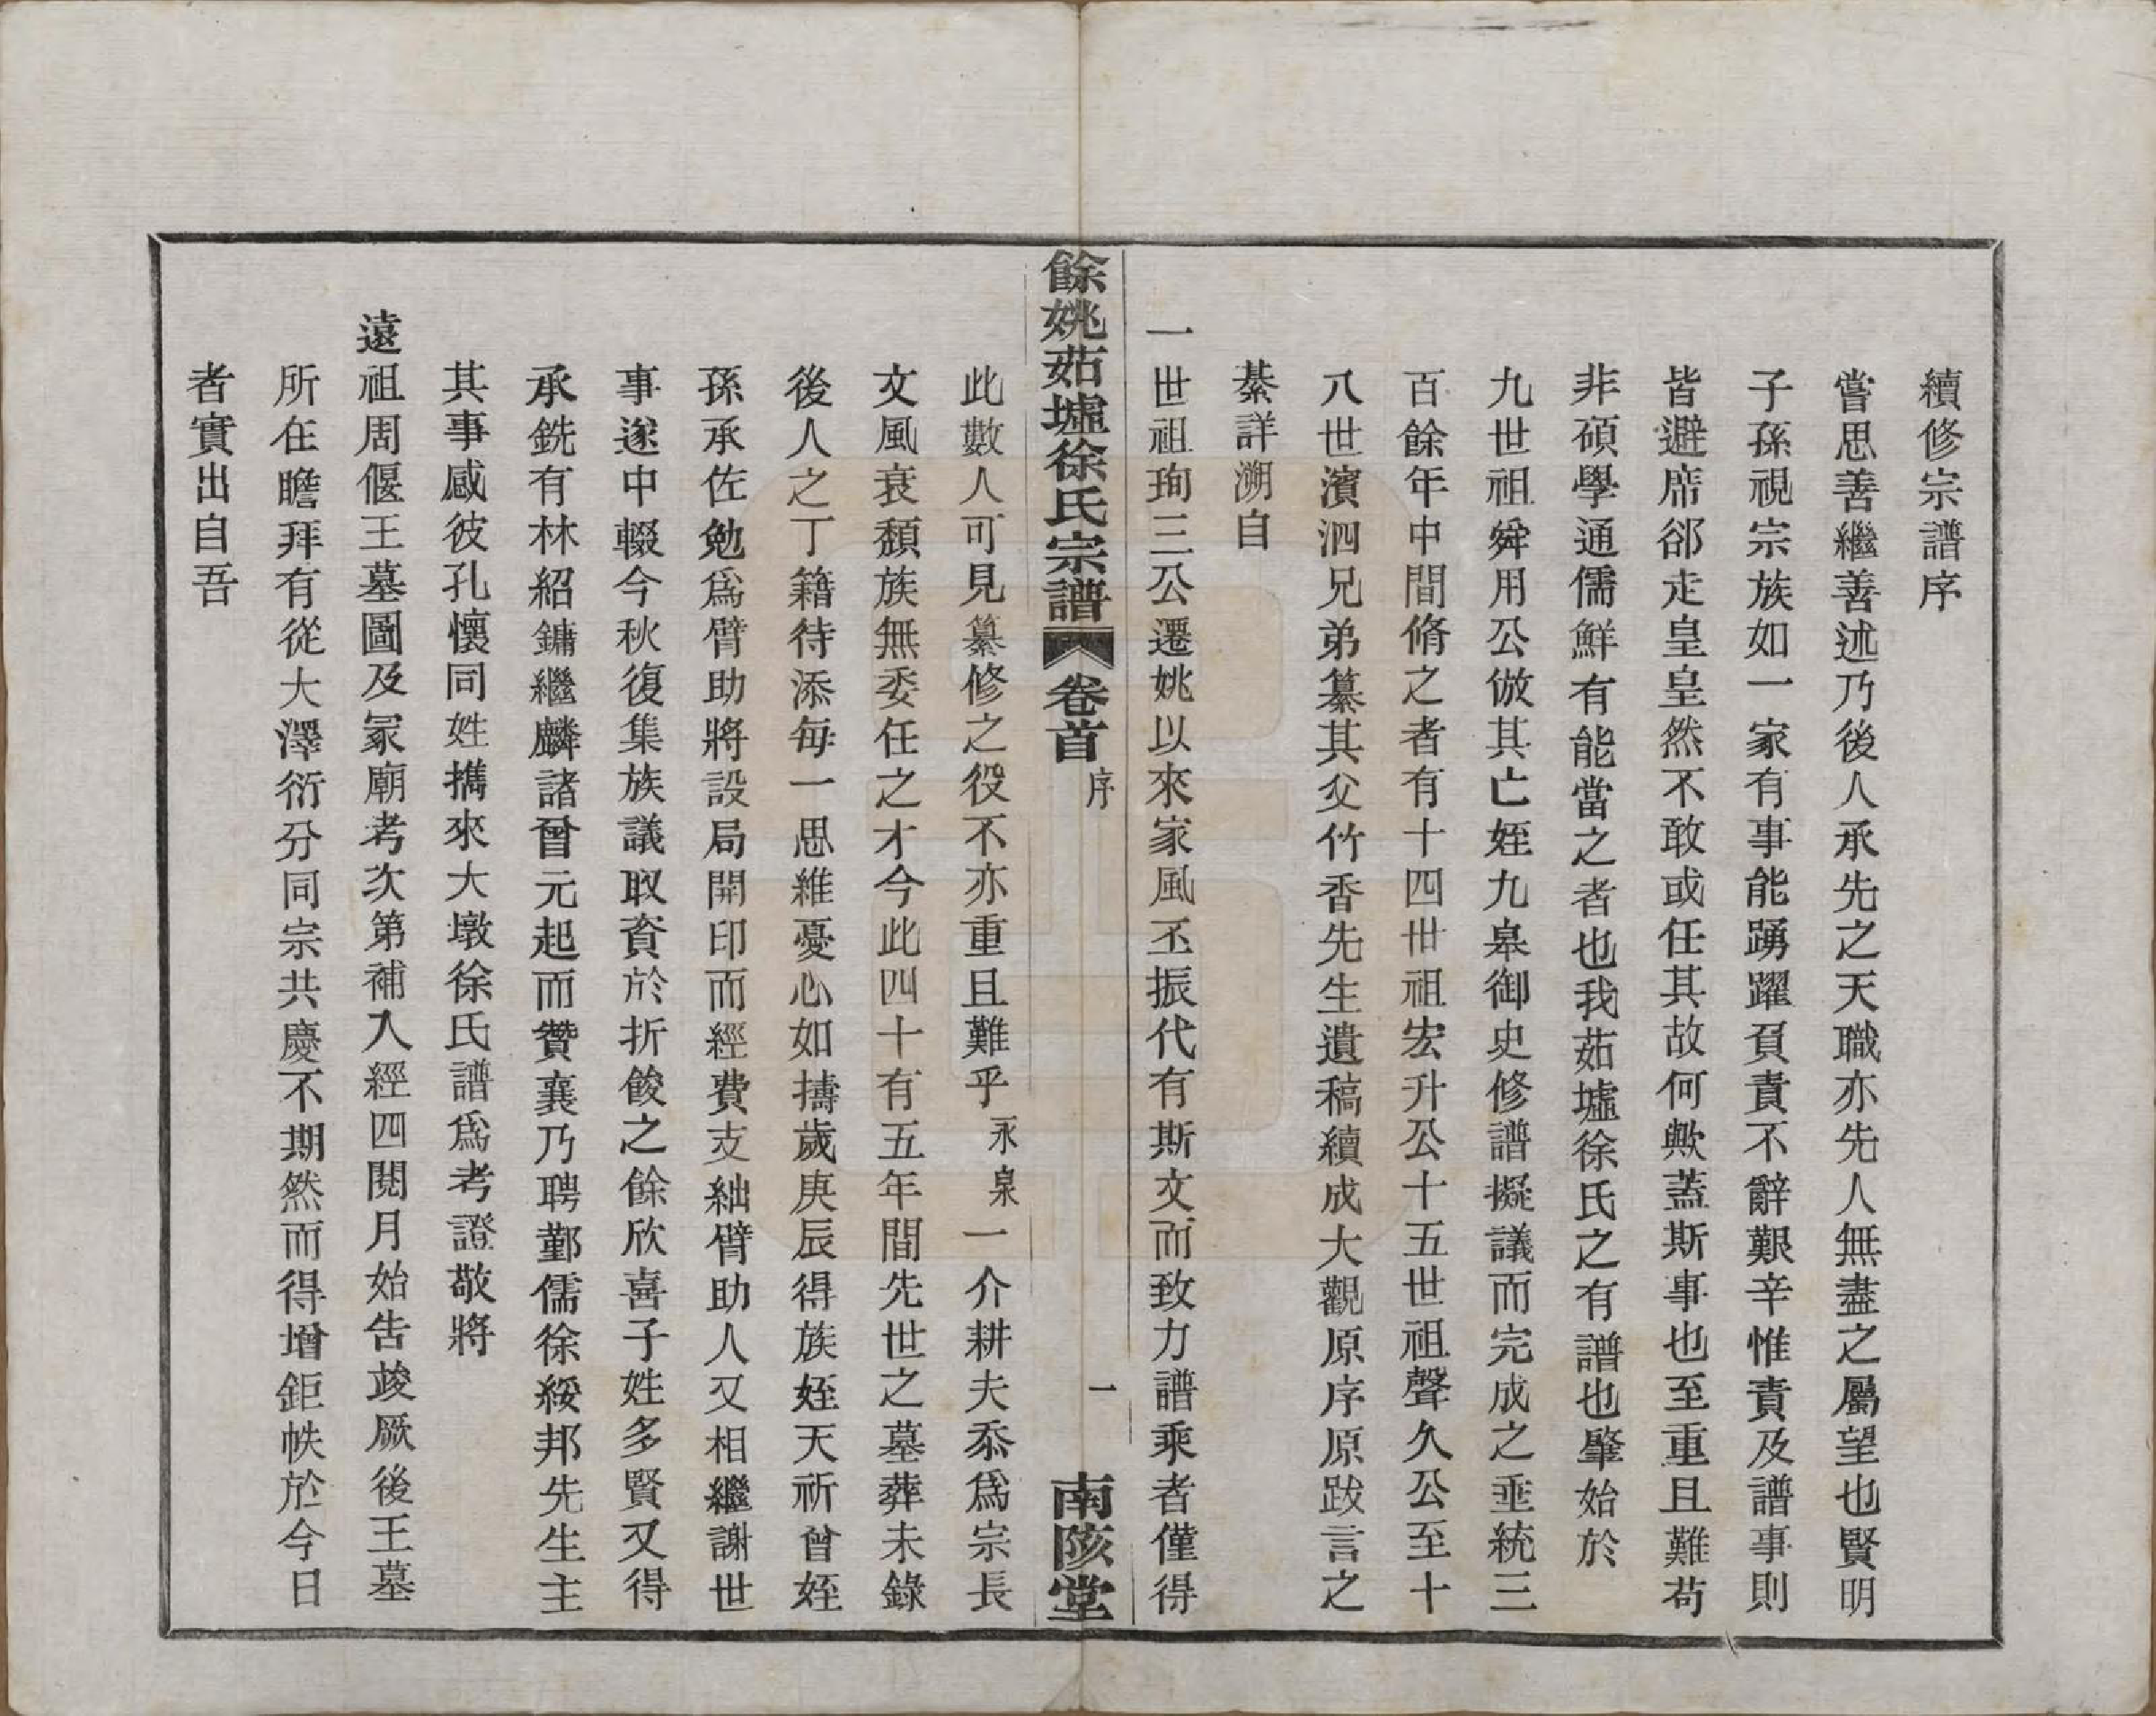 續修宗譜序
嘗思善繼善述乃後人承先之天職亦先人無盡之屬望也賢明
子孫視宗族如一家有事能踴躍負責不辭艱辛惟責及譜事則
皆避席郤走皇皇然不敢或任其故何歟蓋斯事也至重且難苟
非碩學通儒鮮有能當之者也我茹墟徐氏之有譜也肇始於
九世祖舜用公倣其亡姪九皋御史修譜擬議而完成之垂統三
百餘年中間脩之者有十四世祖宏升公十五世祖聲久公至十
八世濱泗兄弟纂其父竹香先生遺稿續成大觀原序原跋言之
綦詳溯自
一世祖珣三公遷姚以來家風丕振代有斯文而致力譜乘者僅得
餘姚茹墟徐氏宗譜 卷首 序 一 南陔堂
此數人可見纂修之役不亦重且難乎永泉一介耕夫忝爲宗長
文風衰頹族無委任之才今此四十有五年間先世之墓葬未錄
後人之丁籍待添每一思維憂心如擣歲庚辰得族姪天祈曾姪
孫承佐勉爲臂助將設局開印而經費支絀臂助人又相繼謝世
事遂中輟今秋復集族議取資於折餕之餘欣喜子姓多賢又得
承銑有林紹鏞繼麟諸曾元起而贊襄乃聘鄞儒徐綏邦先生主
其事感彼孔懷同姓攜來大墩徐氏譜爲考證敬將
遠祖周偃王墓圖及冢廟考次第補入經四閱月始告竣厥後王墓
所在瞻拜有從大澤衍分同宗共慶不期然而得增鉅帙於今日
者實出自吾